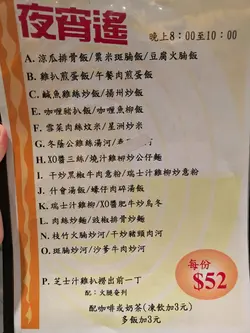 夜宵遙
晚上8：00至10：00
A. 涼瓜排骨飯/粟米斑腩飯/豆腐火腩飯
B. 雞扒煎蛋飯/午餐肉煎蛋飯
C. 鹹魚雞絲炒飯/揚州炒飯
E. 咖喱豬扒飯/咖喱魚柳飯
F. 雪菜肉絲炆米/星洲炒米
G. 冬蔭公雞絲湯河/
H. XO醬三絲/燒汁雞柳炒公仔麵
I. 干炒黑椒牛肉意粉/瑞士汁雞柳炒意粉
J. 什會湯飯/蠔仔肉碎湯飯
K. 瑞士汁雞柳/XO肥牛炒烏冬
L. 肉絲炒麵/豉椒排骨炒麵
N. 枝竹火腩炒河/干炒豬頸肉河
O. 斑腩炒河/沙爹牛肉炒河
P. 芝士汁雞扒撈出前一丁
配：火腿奄列
每份
$52
配咖啡或奶茶(凍飲加3元)
多飯加3元